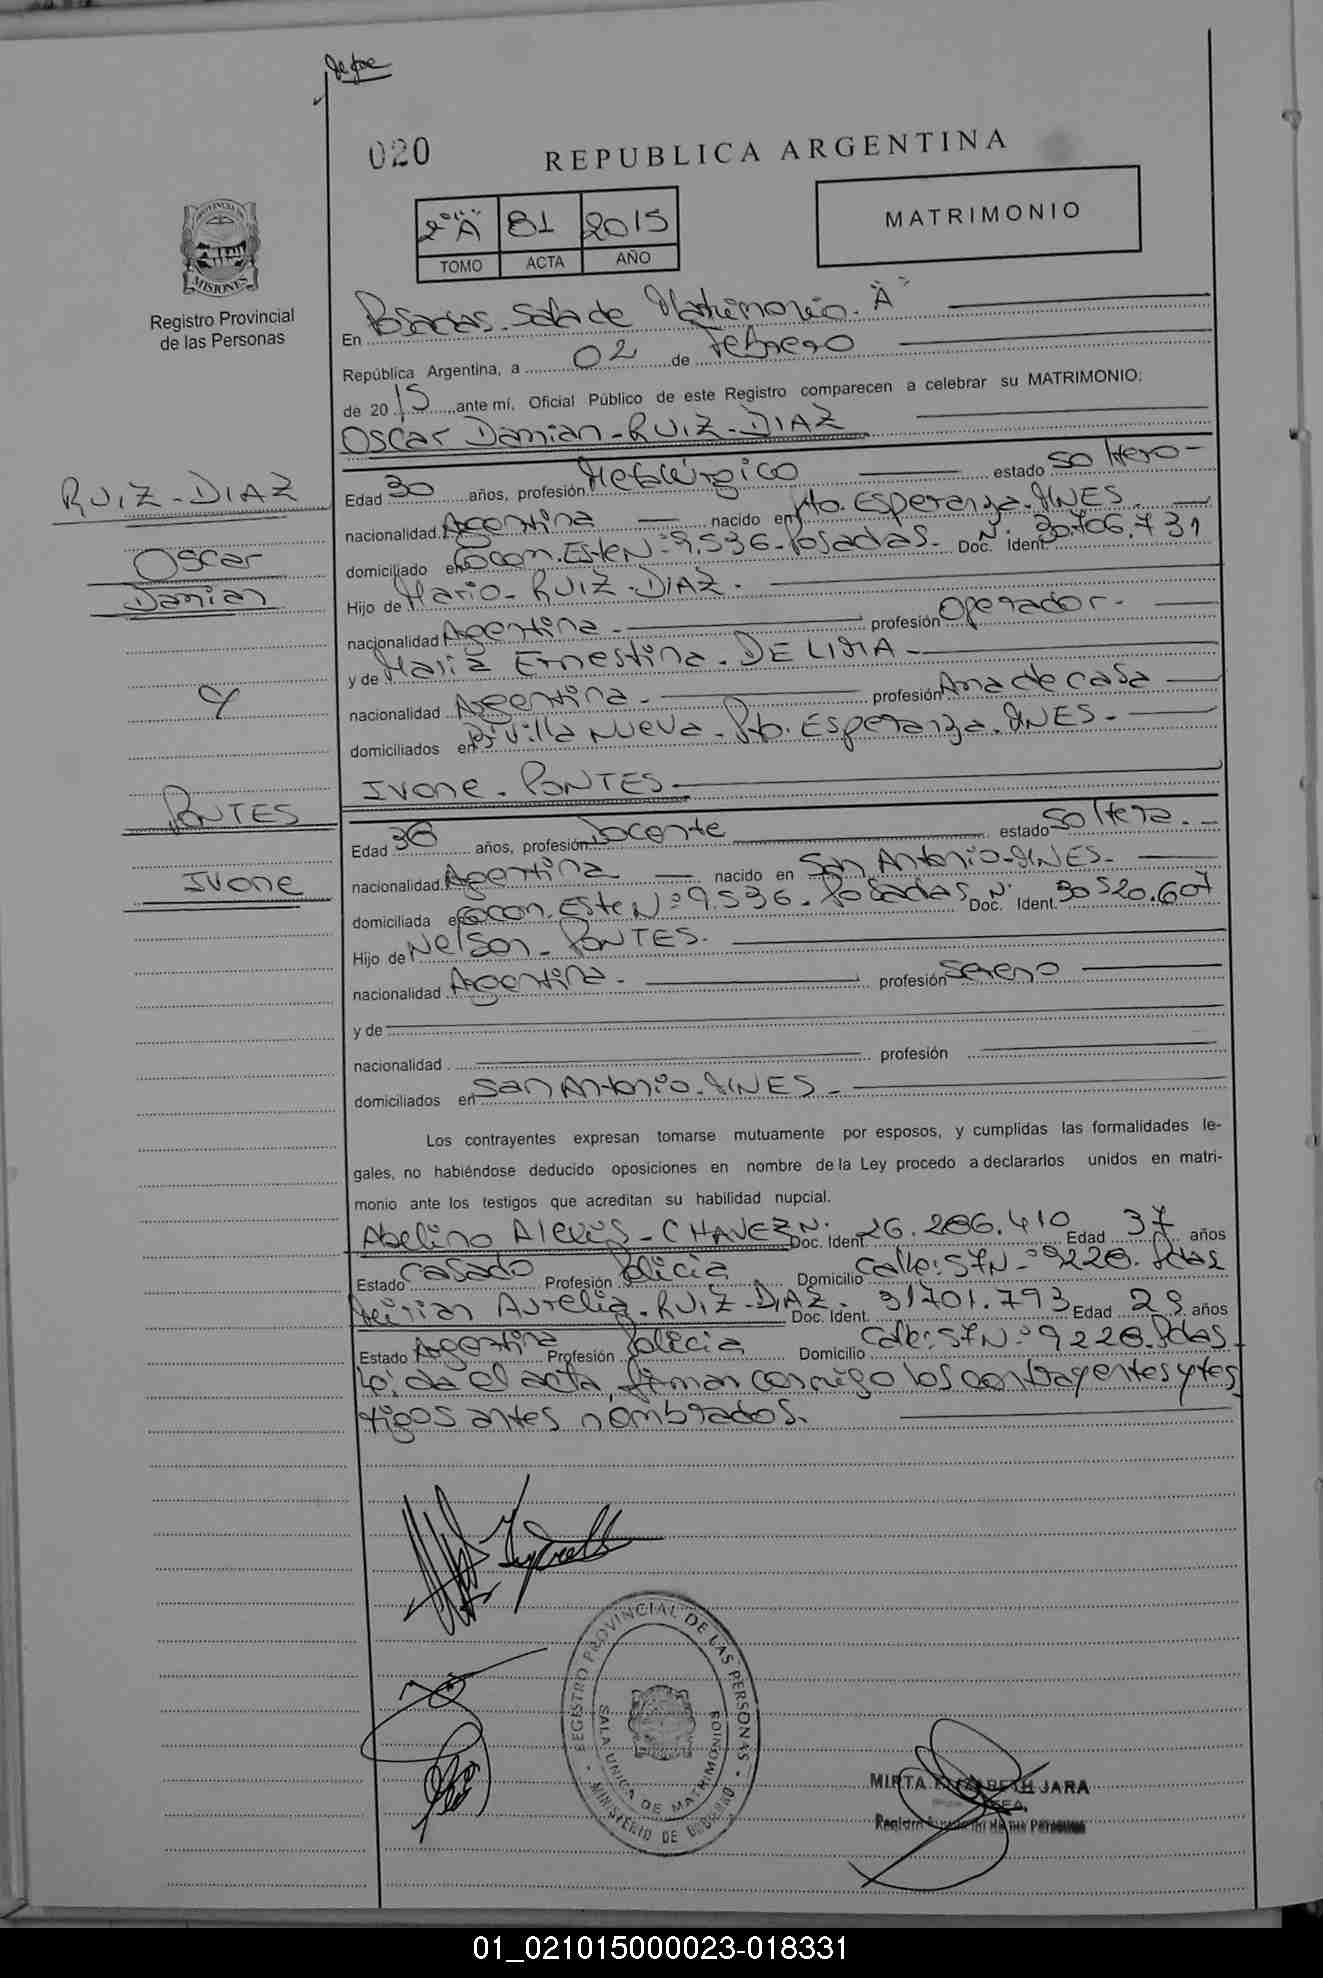 020
REPUBLICA ARGENTINA
2º "A" 81 2015
TOMO ACTA AÑO
MATRIMONIO
PROVINCIA DE
MISIONES
Registro Provincial
de las Personas
En Posadas. Sala de Matrimonio. "A"
República Argentina, a 02 de Febrero
de 2015 ante mí, Oficial Público de este Registro comparecen a celebrar su MATRIMONIO:
Oscar Damian - RUIZ - DIAZ
RUIZ - DIAZ
Oscar
Damian
y
PONTES
Ivone
Edad 30 años, profesión Metalúrgico estado soltero -
nacionalidad Argentina nacido en Pto. Esperanza. MNES.
domiciliado en Este Nº 9.536 - Posadas - Doc. Ident. Nº 30.706.731
Hijo de Mario - RUIZ - DIAZ.
nacionalidad Argentina - profesión Operador -
y de Maria Ernestina. DE LIMA -
nacionalidad Argentina - profesión Ama de casa
domiciliados en Bº Villa Nueva - Pto. Esperanza. MNES -
Ivone - PONTES -
Edad 36 años, profesión Docente estado soltera. -
nacionalidad Argentina nacido en San Antonio - MNES -
domiciliada en Este Nº 9.536 - Posadas Doc. Ident. Nº 30 520.607
Hijo de Nelson - PONTES.
nacionalidad Argentina. profesión Sereno
y de
nacionalidad profesión
domiciliados en San Antonio. MNES -
Los contrayentes expresan tomarse mutuamente por esposos, y cumplidas las formalidades le-
gales, no habiéndose deducido oposiciones en nombre de la Ley procedo a declararlos unidos en matri-
monio ante los testigos que acreditan su habilidad nupcial.
Abelino Alexis - CHAVEZ Doc. Ident. Nº 26.286.410 Edad 37 años
Estado Casado Profesión Policia Domicilio Calle: 57 Nº 9228. Pdas
Mirian Aurelia - RUIZ - DIAZ - Doc. Ident. 31701.793 Edad 29 años
Estado Argentina Profesión Policia Domicilio Calle: 57 Nº 9228. Pdas.
Leida el acta, firman conmigo los contrayentes y tes
tigos antes nombrados.
REGISTRO PROVINCIAL DE LAS PERSONAS
SALA UNICA DE MATRIMONIOS
MINISTERIO DE GOBIERNO
MIRTA ELIZABETH JARA
Registro Provincial de las Personas
01_021015000023-018331